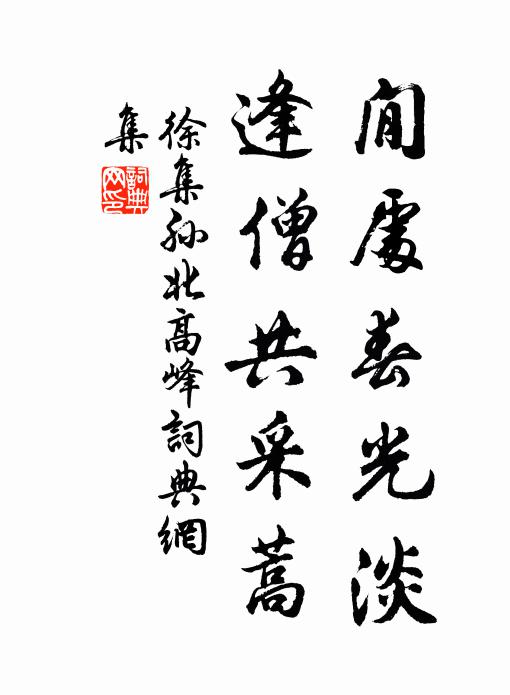 閒處春光淡
逢僧共采蒿
徐集孫北高峰詞典網
集
詞典网印